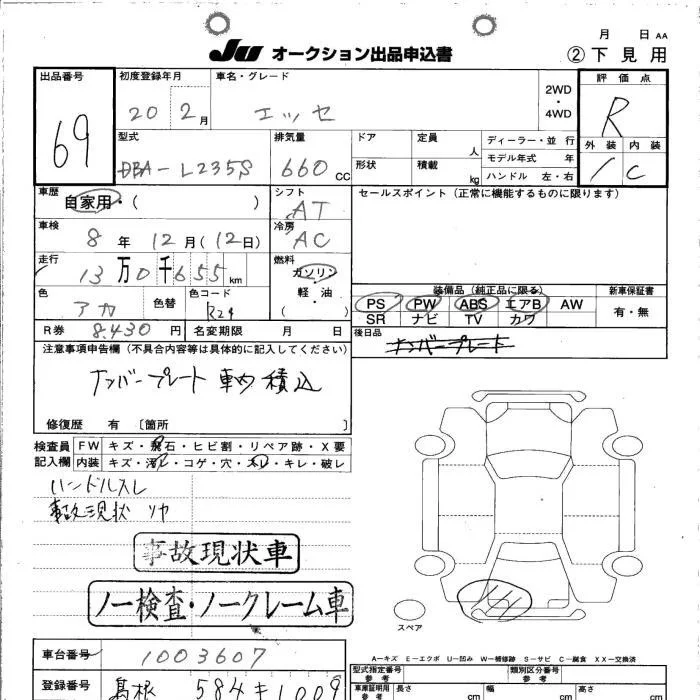 月 日 AA
JU オークション出品申込書 ②下見用
出品番号 69
初度登録年月 20 2月
車名・グレード エッセ
2WD・4WD
評価点 R
外装 1 内装 C
型式 DBA-L235S
排気量 660 CC
ドア
形状
定員 人
積載 kg
ディーラー・並行
モデル年式 年
ハンドル 左・右
車歴 自家用・( )
シフト AT
セールスポイント(正常に機能するものに限ります)
車検 8年 12月(12日)
冷房 AC
走行 13万0千655 km
燃料 ガソリン 軽・油
色 アカ 色替 色コード R24
装備品(純正品に限る) 新車保証書
PS PW ABS エアB AW 有・無
SR ナビ TV カワ
R券 8,430円 名変期限 月 日
後日品 ナンバープレート
注意事項申告欄(不具合内容等は具体的に記入してください)
ナンバープレート 車内積込
修復歴 有 〔箇所 〕
検査員記入欄
FW キズ・飛石・ヒビ割・リペア跡・X要
内装 キズ・汚れ・コゲ・穴・スレ・キレ・破レ
ハンドルスレ
事故現状 リヤ
事故現状車
ノー検査・ノークレーム車
スペア
A-キズ E-エクボ U-凹み W-補修跡 S-サビ C-腐食 XX-交換済
車台番号 1003607
型式指定番号 参考
類別区分番号 参考
登録番号 島根 584 キ 1009
車庫証明用 参考 長さ cm 幅 cm 高さ cm